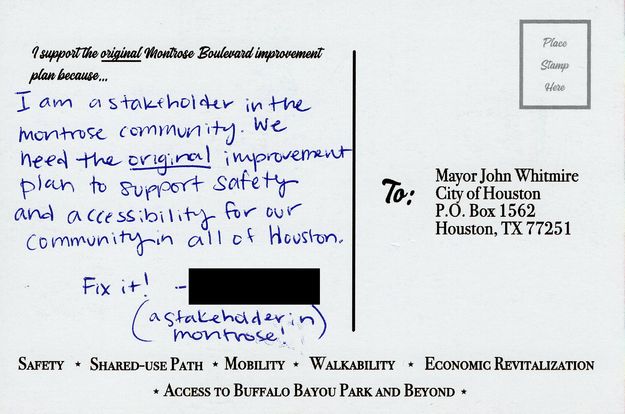 I support the original Montrose Boulevard improvement
plan because...
I am a stakeholder in the
montrose community. We
need the original improvement
plan to support safety
and accessibility for our
community in all of Houston.
Fix it! -
(a stakeholder in
montrose!)
Place
Stamp
Here
To:
Mayor John Whitmire
City of Houston
P.O. Box 1562
Houston, TX 77251
SAFETY ⋆ SHARED-USE PATH ⋆ MOBILITY ⋆ WALKABILITY ⋆ ECONOMIC REVITALIZATION
⋆ ACCESS TO BUFFALO BAYOU PARK AND BEYOND ⋆